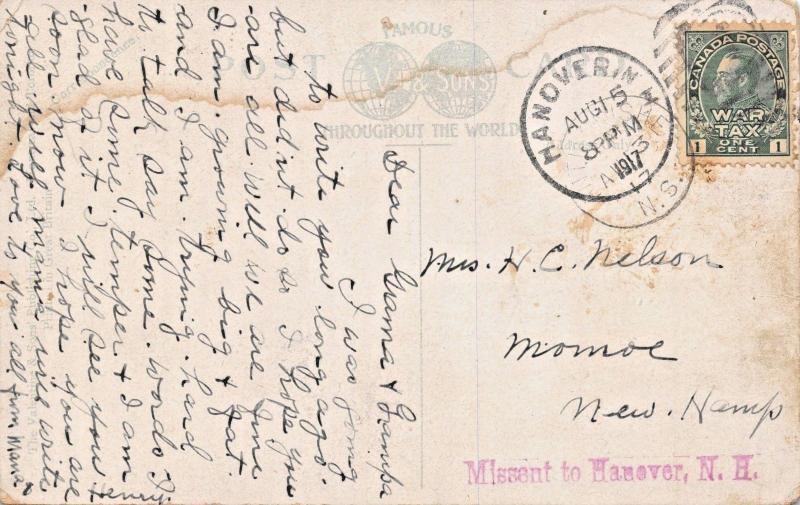 FAMOUS
POST CARD
V & SONS
THROUGHOUT THE WORLD
HANOVER N.H.
AUG 15
8 PM
1917
N.S.
CANADA POSTAGE
WAR
TAX
ONE
CENT
1 1
Dear Grama & Grampa
I was going
to write you long ago.
but didn't do so I hope you
are all well we are fine
I am growing big & fat.
and I am trying hard
to talk say some words I
have some temper & I am
glad of it I will see you
soon now I hope you are
all well mama will write
tonight. Love to you all from Mama &
Henry
Mrs. H. C. Nelson
Monroe
New. Hamp
Missent to Hanover, N. H.